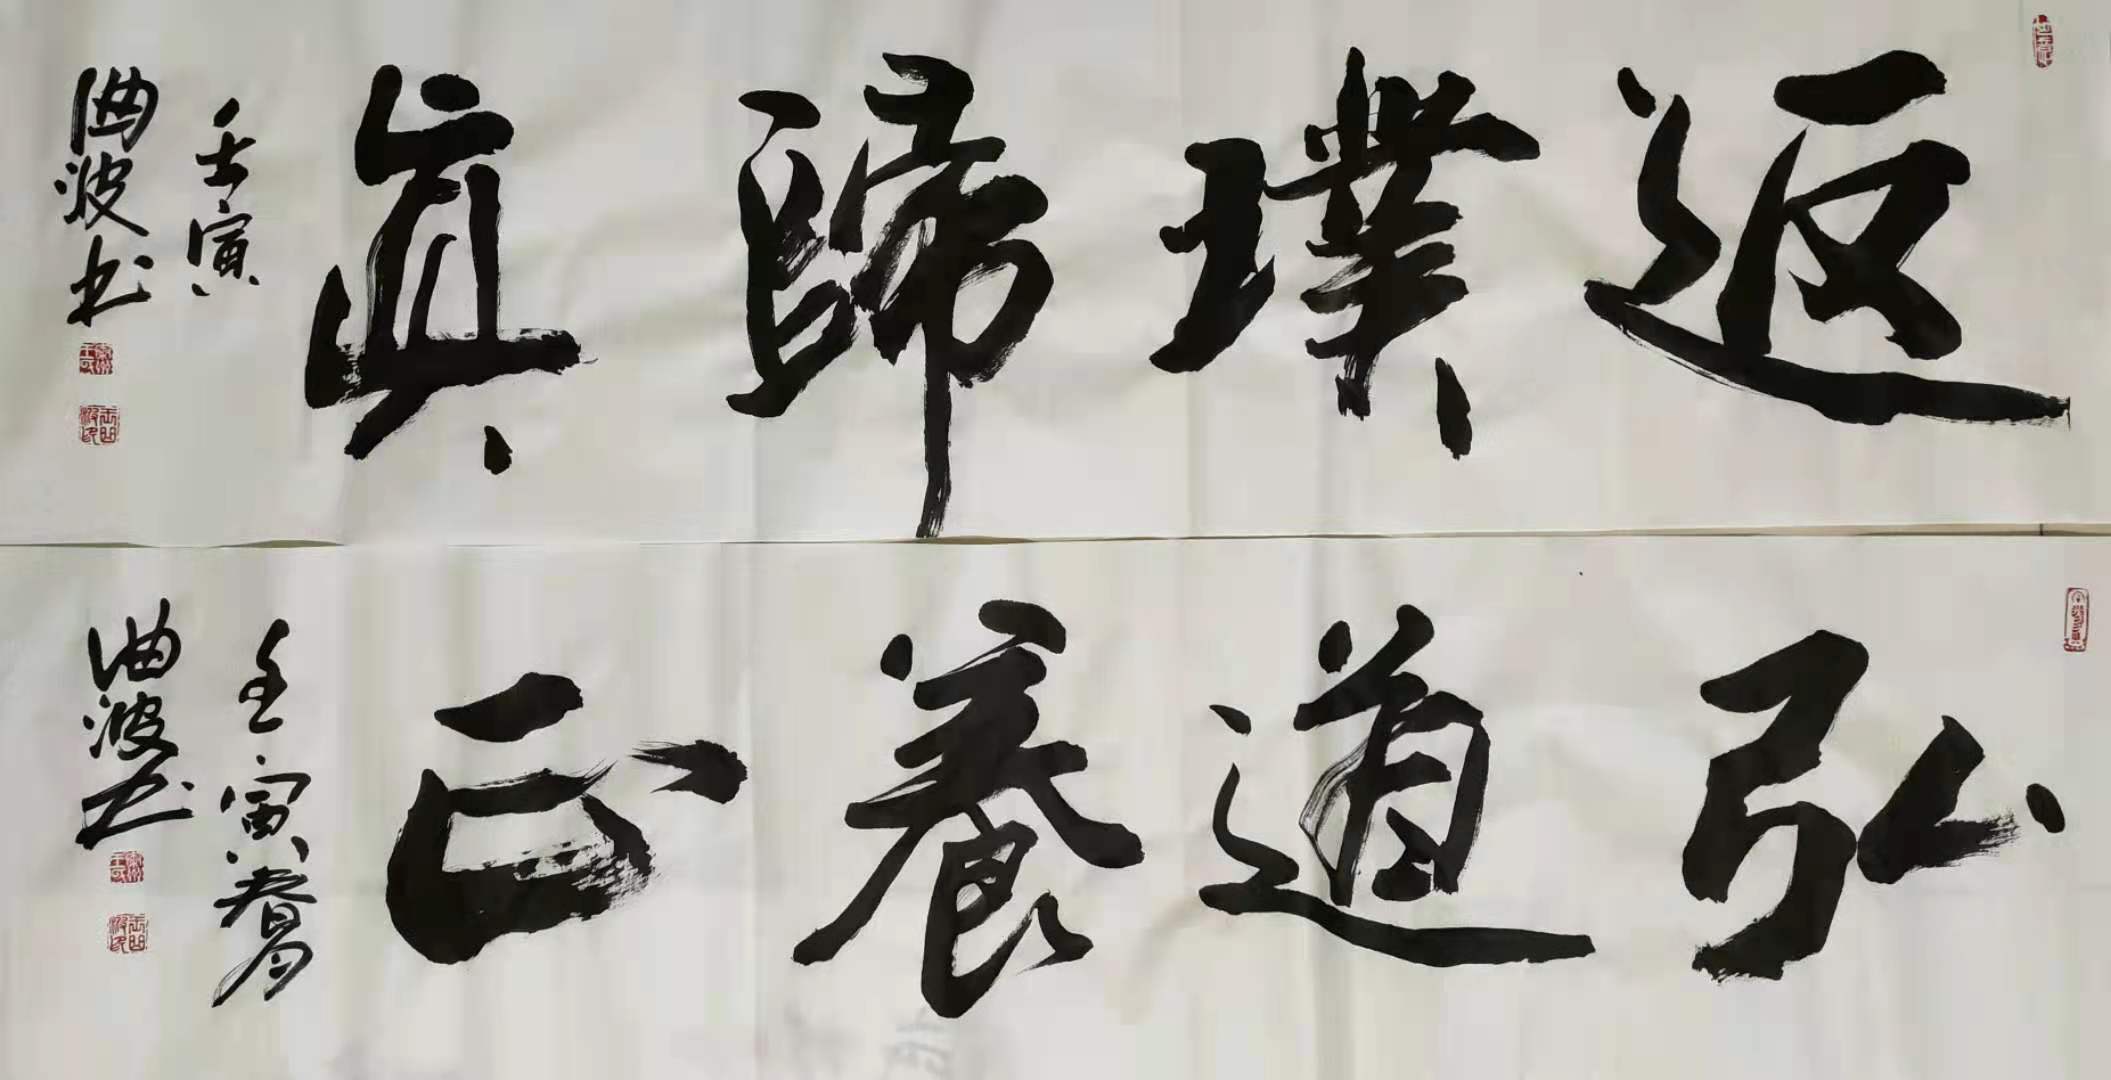 返璞歸眞
壬寅
波书
弘道養正
壬寅春月
波书